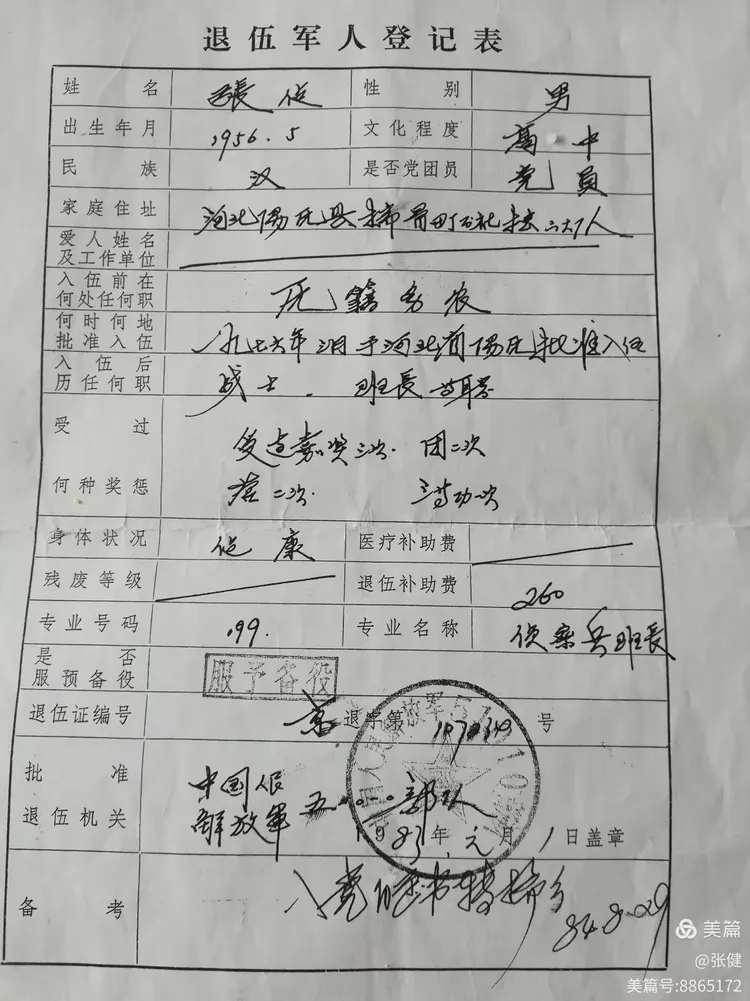 退伍军人登记表
姓名 張健 性别 男
出生年月 1956.5 文化程度 高中
民族 汉 是否党团员 党員
家庭住址 河北陽原县
爱人姓名
及工作单位
入伍前在
何处任何职 原籍务农
何时何地
批准入伍 一九七六年三月于河北省陽原县批准入伍
入伍后
历任何职 战士. 班長
受过 受过嘉奖三次. 团二次
何种奖惩 营二次. 三等功一次
身体状况 健康 医疗补助费
残废等级 退伍补助费 260
专业号码 199. 专业名称 侦察兵班長
是否
服预备役 服予备役
退伍证编号 京退字第 号
批准 中国人民
退伍机关 解放軍五一〇一一部队
1983年元月1日盖章
备考
84.8.29
美篇
@张健
美篇号:8865172